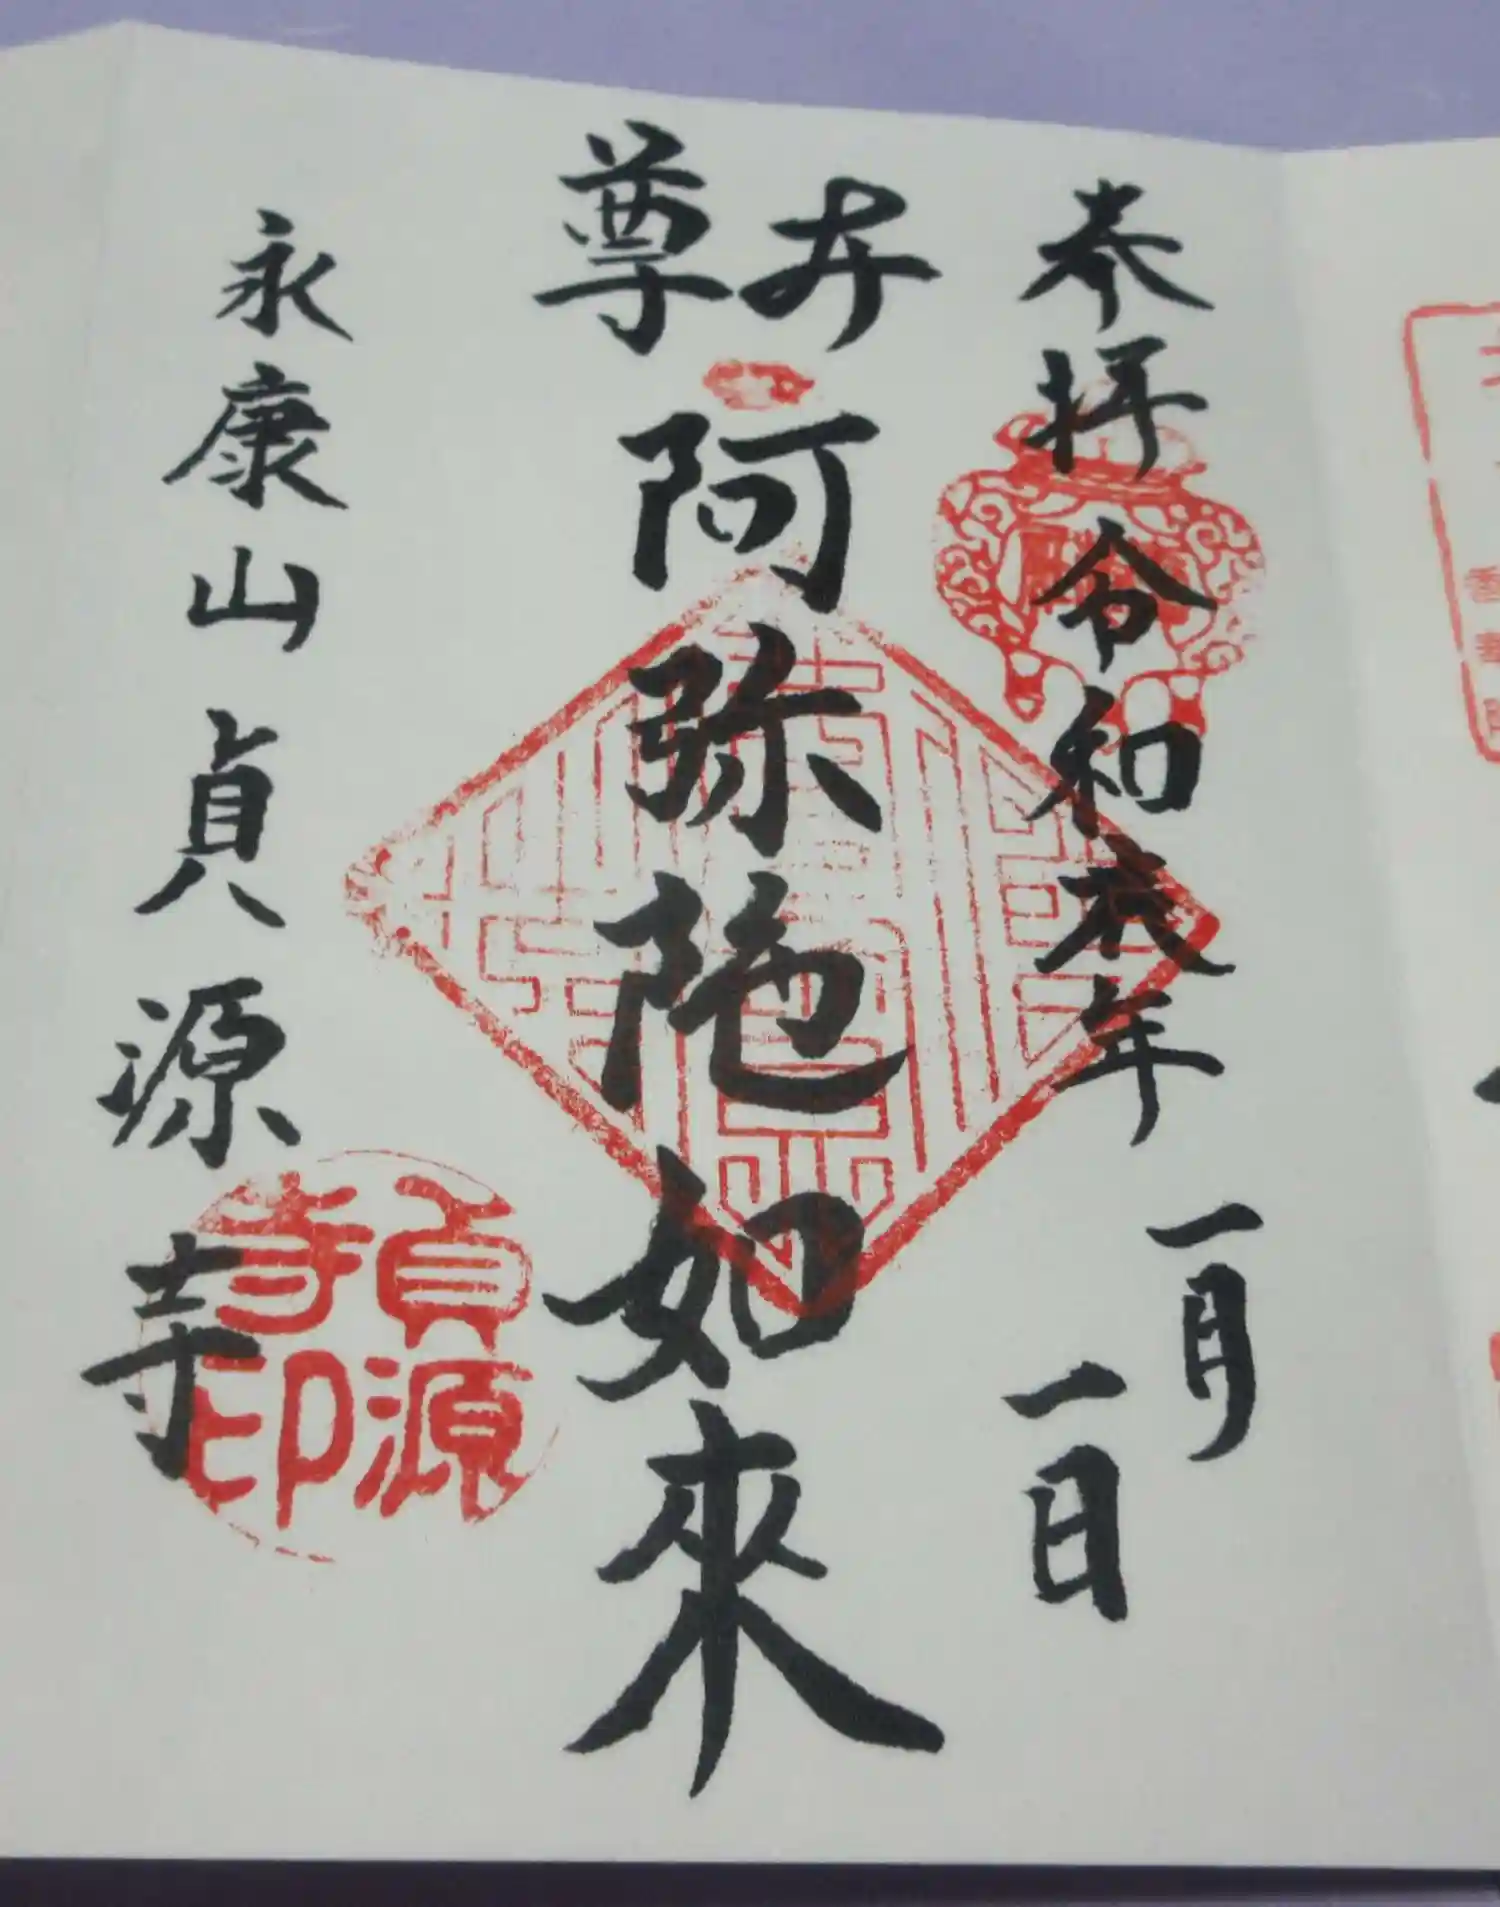 奉拝 令和 年
一月
一日
本尊
阿弥陀如來
永康山 貞源寺
貞源寺印